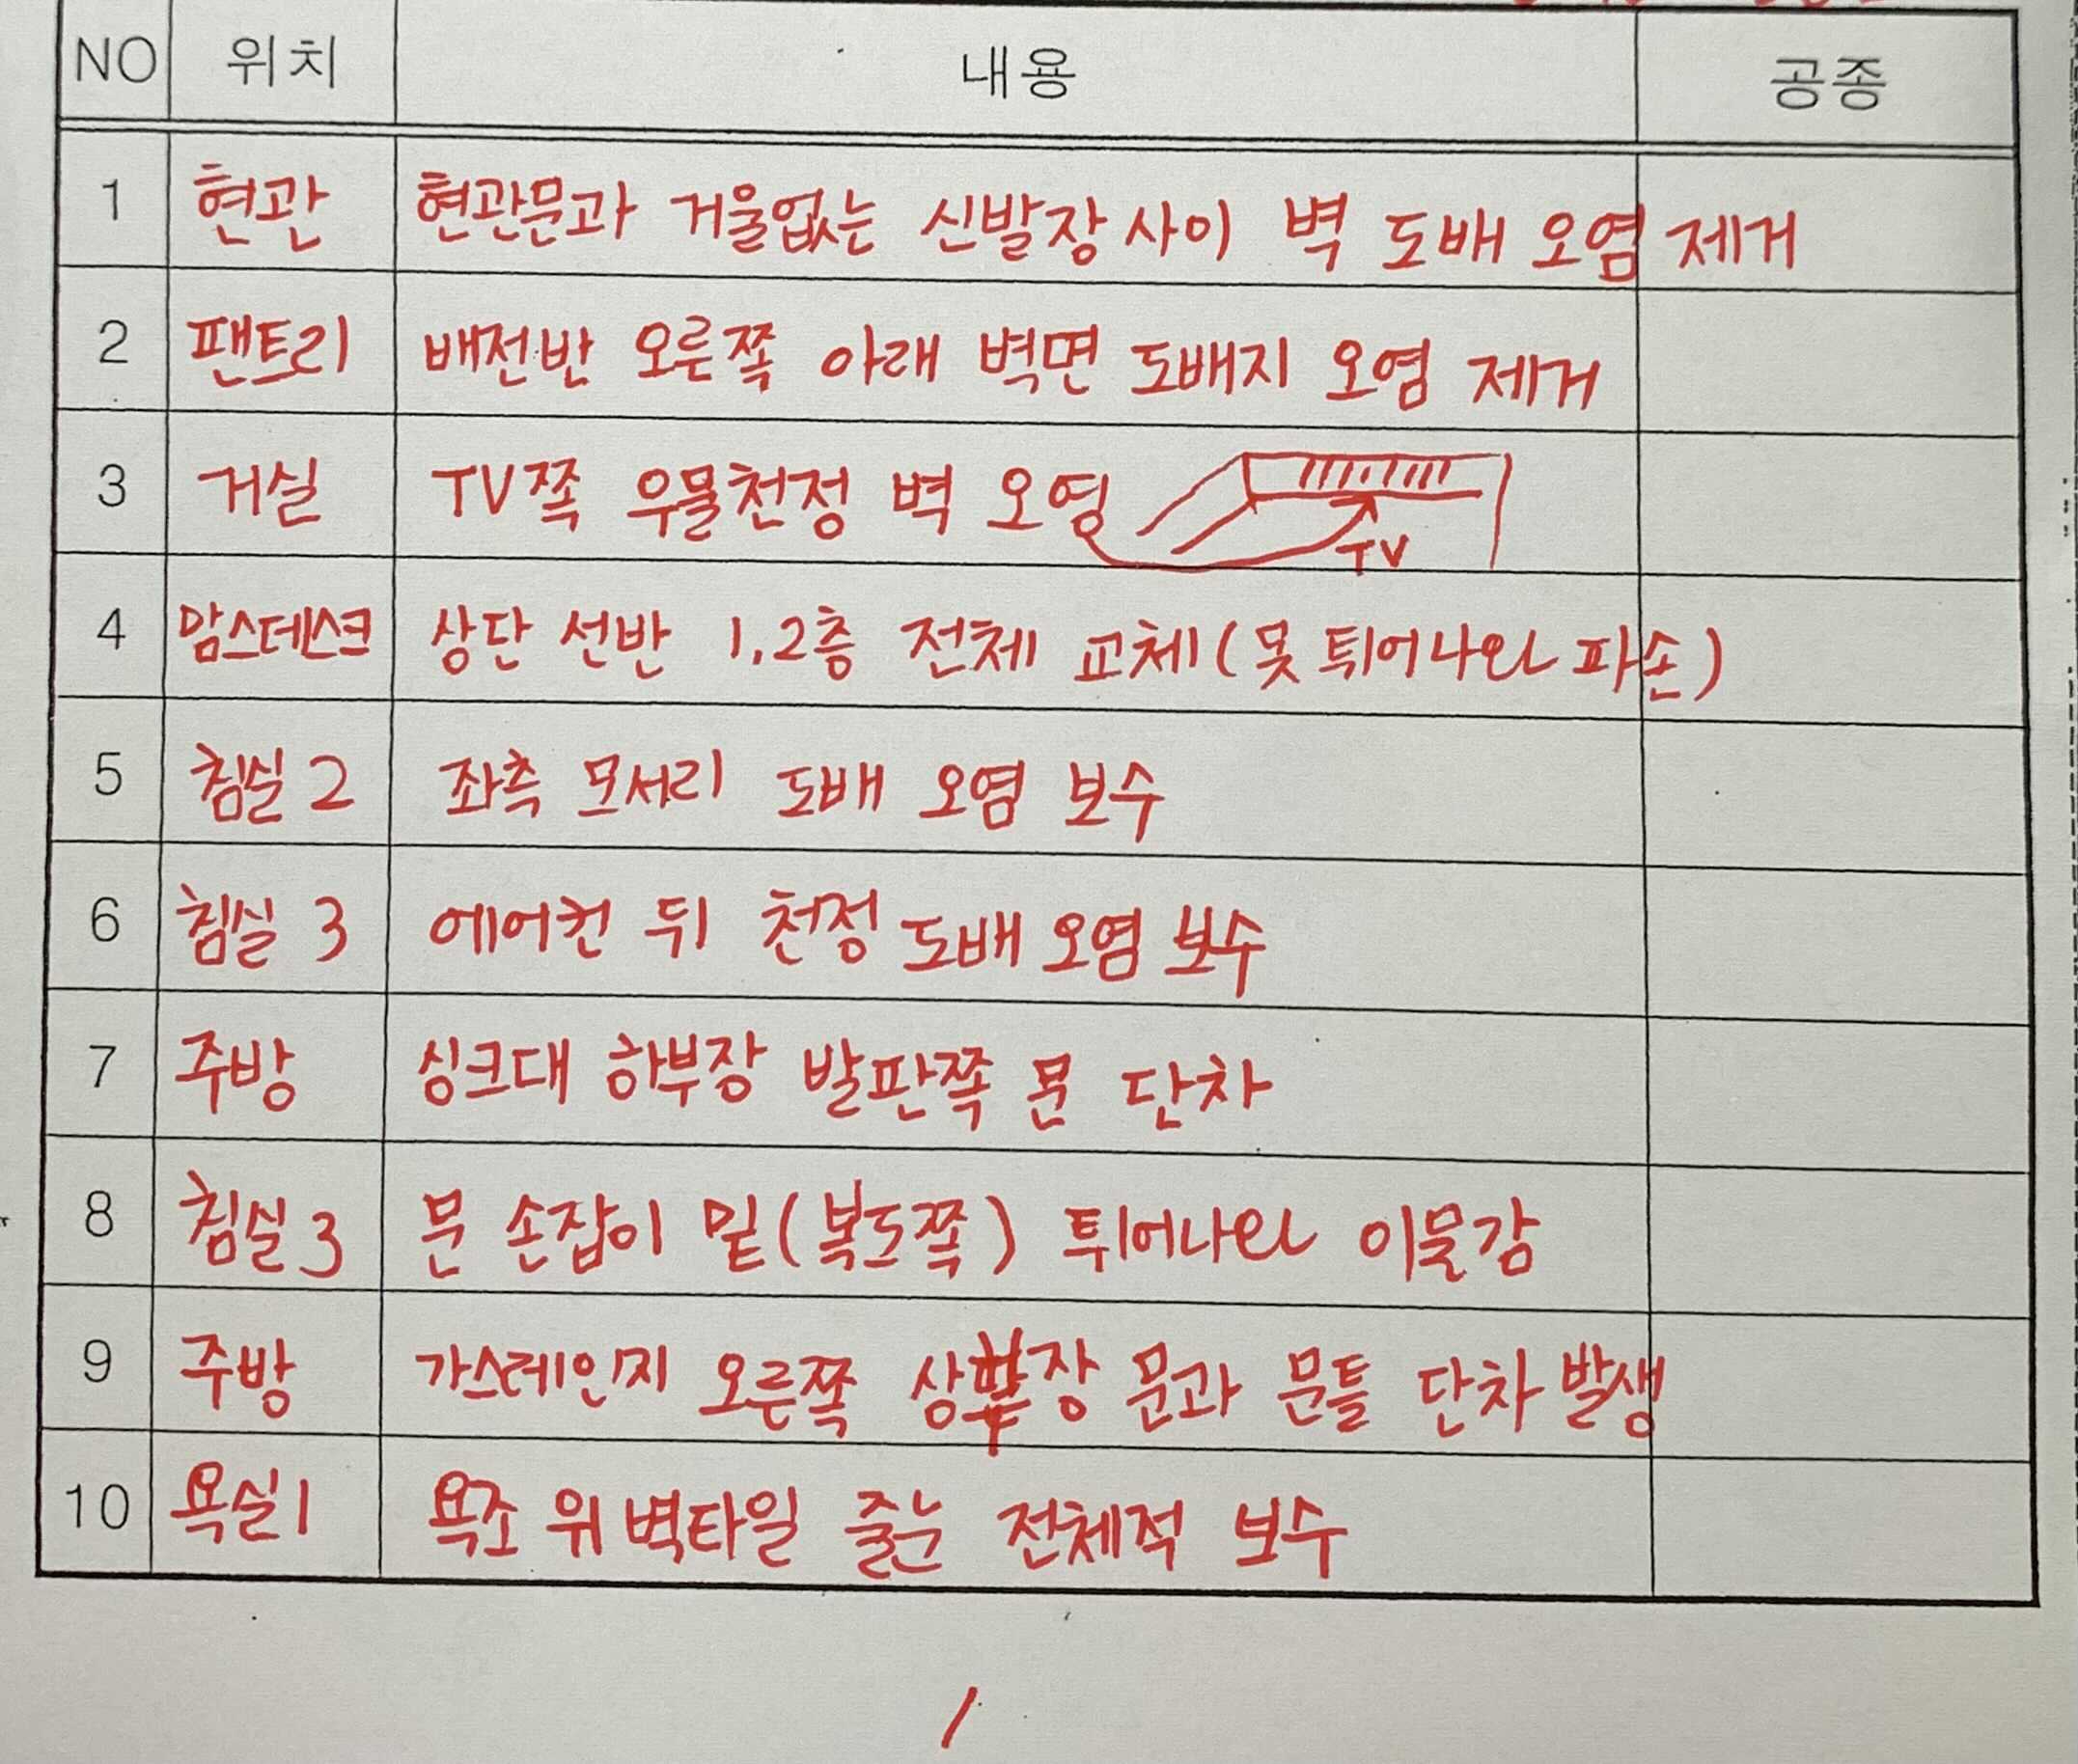 NO 위치 내용 공종
1 현관 현관문과 거울없는 신발장 사이 벽 도배 오염 제거
2 팬트리 배전반 오른쪽 아래 벽면 도배지 오염 제거
3 거실 TV쪽 우물천정 벽 오염
TV
4 맘스데스크 상단 선반 1,2층 전체 교체(못 튀어나와 파손)
5 침실2 좌측 모서리 도배 오염 보수
6 침실 3 에어컨 뒤 천정 도배 오염 보수
7 주방 싱크대 하부장 발판쪽 문 단차
8 침실3 문 손잡이 밑(복도쪽) 튀어나와 이물감
9 주방 가스레인지 오른쪽 상부장 문과 문틀 단차 발생
10 욕실1 욕조 위 벽타일 줄눈 전체적 보수
1